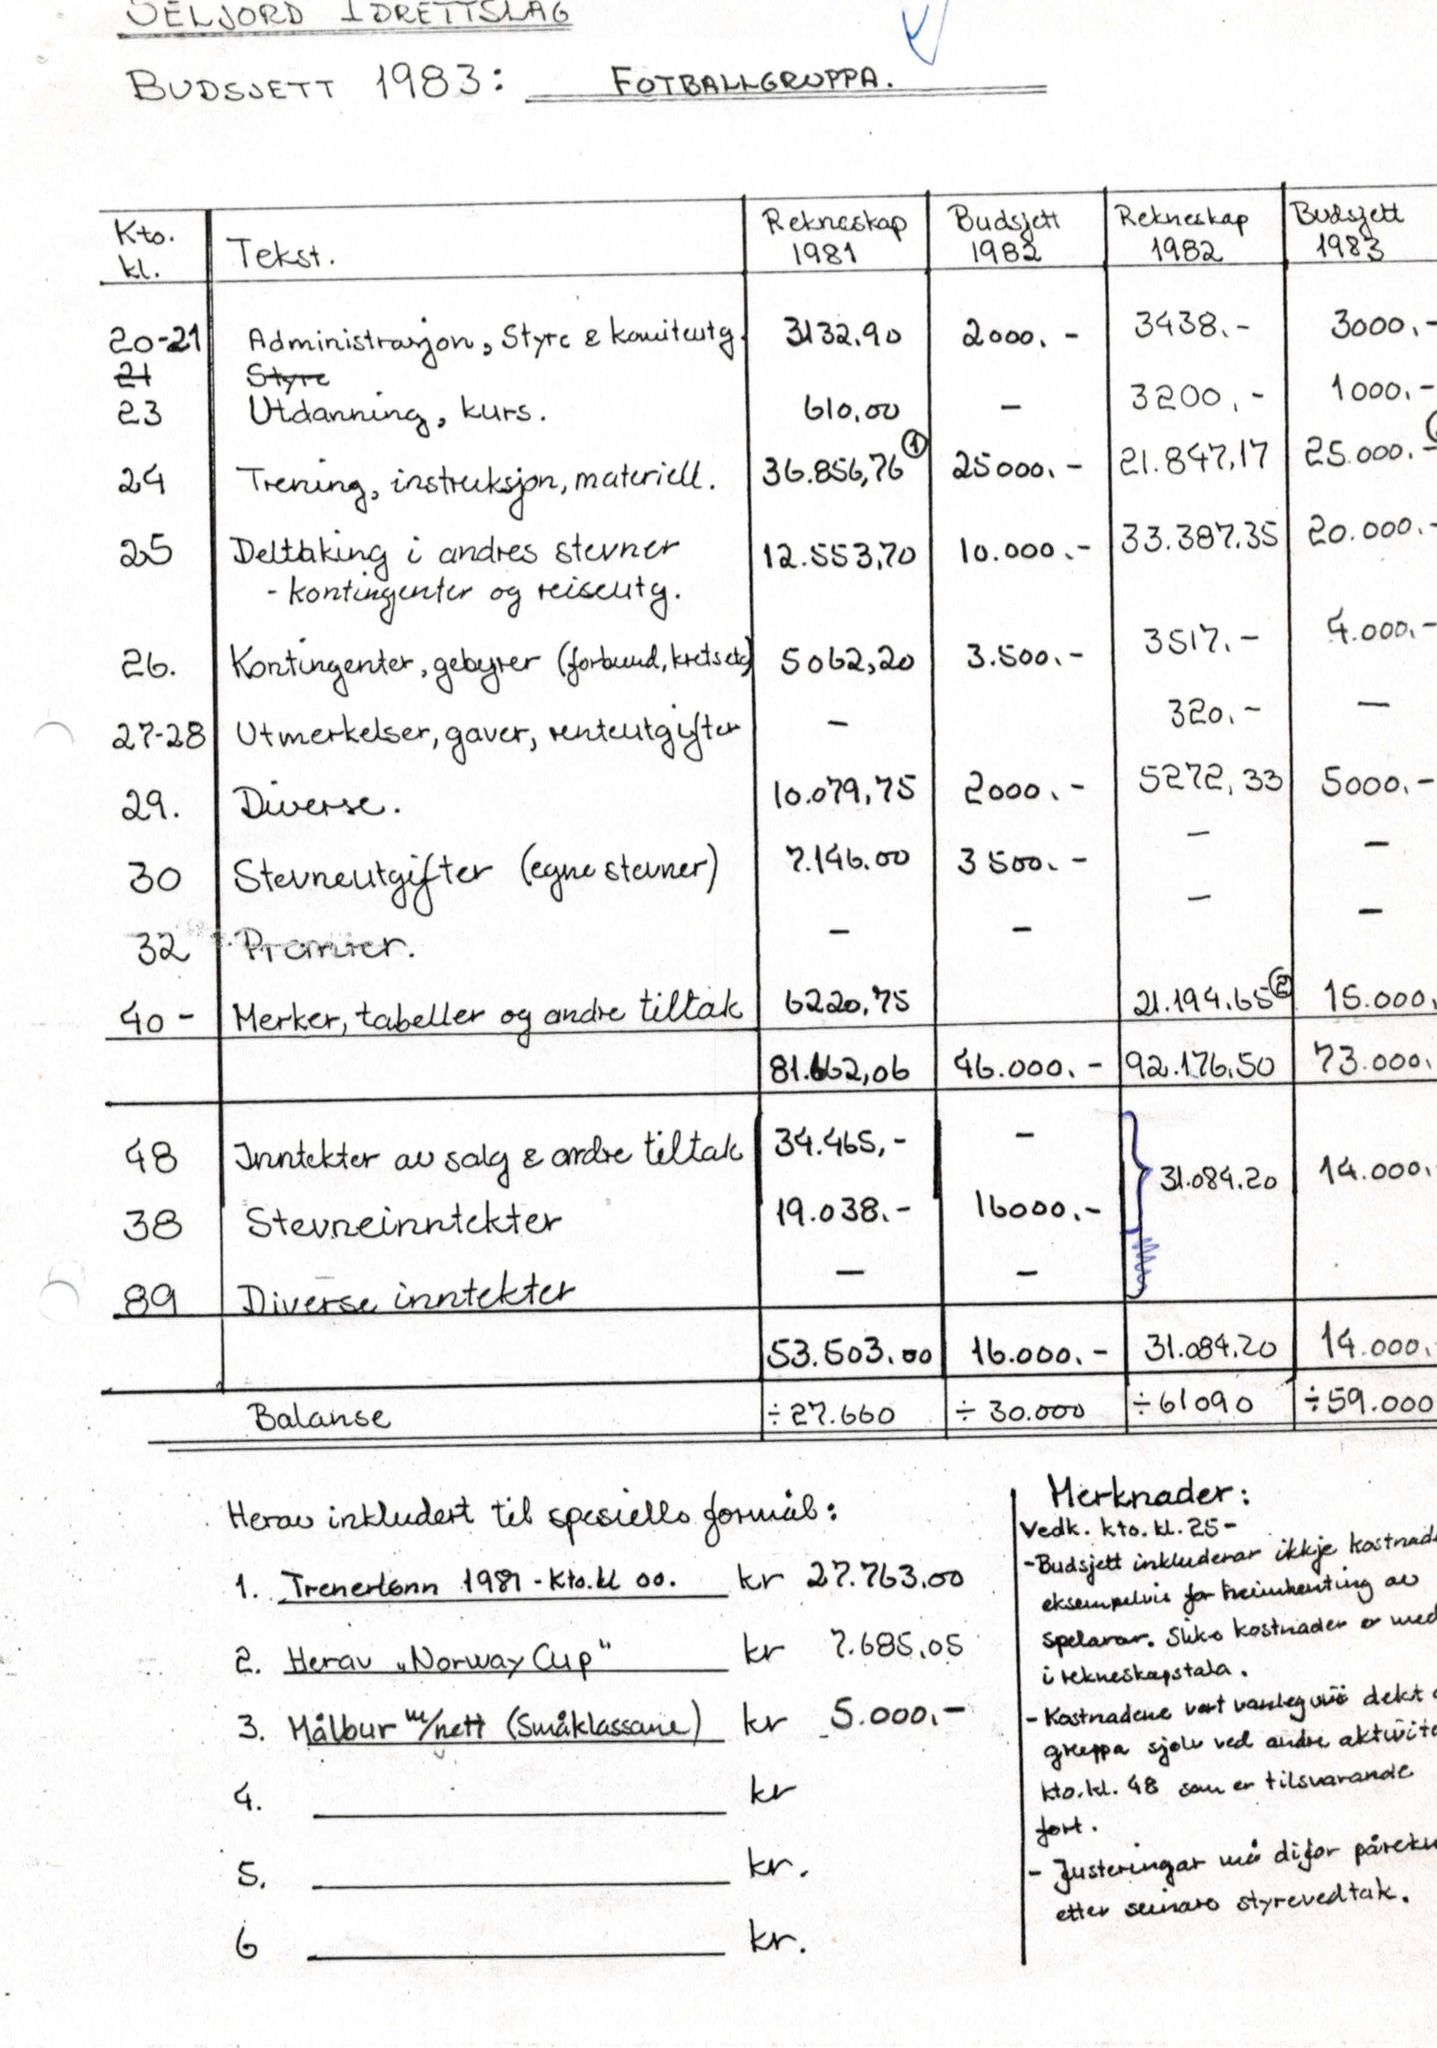 SELJORD IDRETTSLAG
BUDSJETT 1983: FOTBALLGRUPPA.
Kto. kl. Tekst. Rekneskap 1981 Budsjett 1982 Rekneskap 1982 Budsjett 1983
20-21 Administrasjon, Styre & komiteutg. 3132.90 2000.- 3438.- 3000.-
21 Styre
23 Utdanning, kurs. 610.00 - 3200.- 1000.-
24 Trening, instruksjon, materiell. 36.856,76 ① 25000.- 21.847,17 25.000.-
25 Deltaking i andres stevner 12.553,70 10.000.- 33.387.35 20.000.-
- kontingenter og reiseutg.
26. Kontingenter, gebyrer (forbund, krets etc) 5062,20 3.500.- 3517.- 4.000.-
27-28 Utmerkelser, gaver, renteutgifter - 320.- -
29. Diverse. 10.079,75 2000.- 5272,33 5000.-
30 Stevneutgifter (egne stevner) 7.146.00 3500.- - -
32 Premier. - - - -
40- Merker, tabeller og andre tiltak 6220,75 21.194.65 ② 15.000.
81.662,06 46.000.- 92.176,50 73.000.
48 Inntekter av salg & andre tiltak 34.465,- - 31.084.20 14.000.
38 Stevneinntekter 19.038.- 16000.-
89 Diverse inntekter - -
53.503.00 16.000.- 31.084.20 14.000.
Balanse ÷27.660 ÷30.000 ÷61090 ÷59.000
Herav inkludert til spesielle formål:
1. Trenerlønn 1981 - Kto.kl 00. kr 27.763.00
2. Herav "Norway Cup" kr 7.685,05
3. Målbur m/nett (Småklassane) kr 5.000.-
4. kr
5. kr.
6 kr.
Merknader:
Vedk. kto. kl. 25-
- Budsjett inkluderar ikkje kostnad
eksempelvis for heimhenting av
spelarar. Slike kostnader er med
i rekneskapstala.
- Kostnadene vert vanlegvis dekt a
gruppa sjølv ved andre aktivite
kto.kl. 48 som er tilsvarande
ført.
- Justeringar må difor pårekn
etter seinare styrevedtak.